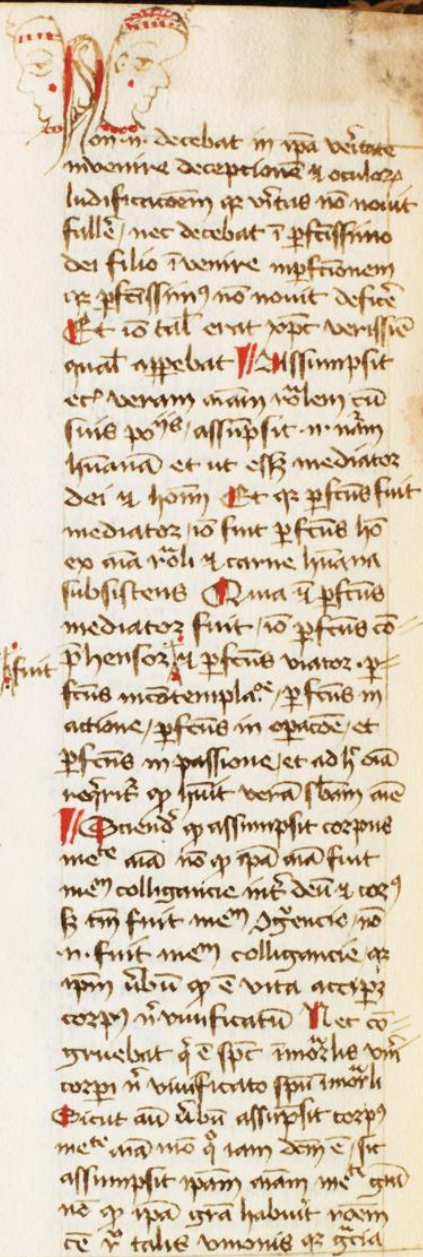 Non .n. decebat in ipa veritate
invenire deceptionē ⁊ oculorꝝ
ludificacōem qꝛ vītas nō novit
fallē / nec decebat ī ꝑfctissimo
dei filio īvenire inꝑfctionem
qꝛ ꝑfctissimꝰ nō novit deficē
Et iō tal̄ erat xp̄c verissīe
qual̄ apꝑebat Assumpsit
ecꝫ veram aīam rōlem cū
suis poījs / assūpsit .n. nām
hūanā et ut eēt mediator
dei ⁊ hom̄ Et qꝛ ꝑfctūs fuit
mediator / iō fuit ꝑfctūs hō
ex aīa rōli ⁊ carne hūana
subsistens Quia ū ꝑfctūs
mediator fuit / iō ꝑfctūs cō
p̄hensor ⁊ ꝑfctūs viator . ꝑ
fuit
fctūs in cōtemplaōe / ꝑfctūs in
actione / ꝑfctūs in oꝑacōe / et
ꝑfctūs in passione / et ad h̄ oīa
reqͥritꝛ ꝙ hūit verā sbām aīe
Sciend̄ ꝙ assumpsit corpus
meᵗᵉ aīa nō ꝙ ipā aīa fuit
meᵐ colligancie int̄ deū ⁊ corꝰ
sꝫ tm̄ fuit meᵐ ꝯgͬuencie / nō
.n. fuit meᵐ colligancie qꝛ
ipm̄ v̄bū ꝙ ē vita acciꝑꝫ
corpꝰ n̄ vivificatū Nec cō
gruebat qͥ ē spc īmorl̄is
corpi n̄ vivificato spū īmorl̄i
Sicut aū v̄bū assūpsit corpꝰ
meᵗᵉ aīa mō qͦ iam dcm̄ ē / sic
assumpsit ipam aīam meᵗᵉ grā
nō ꝙ ipā grā habuit rōem
talis vnionis qꝛ grcīa